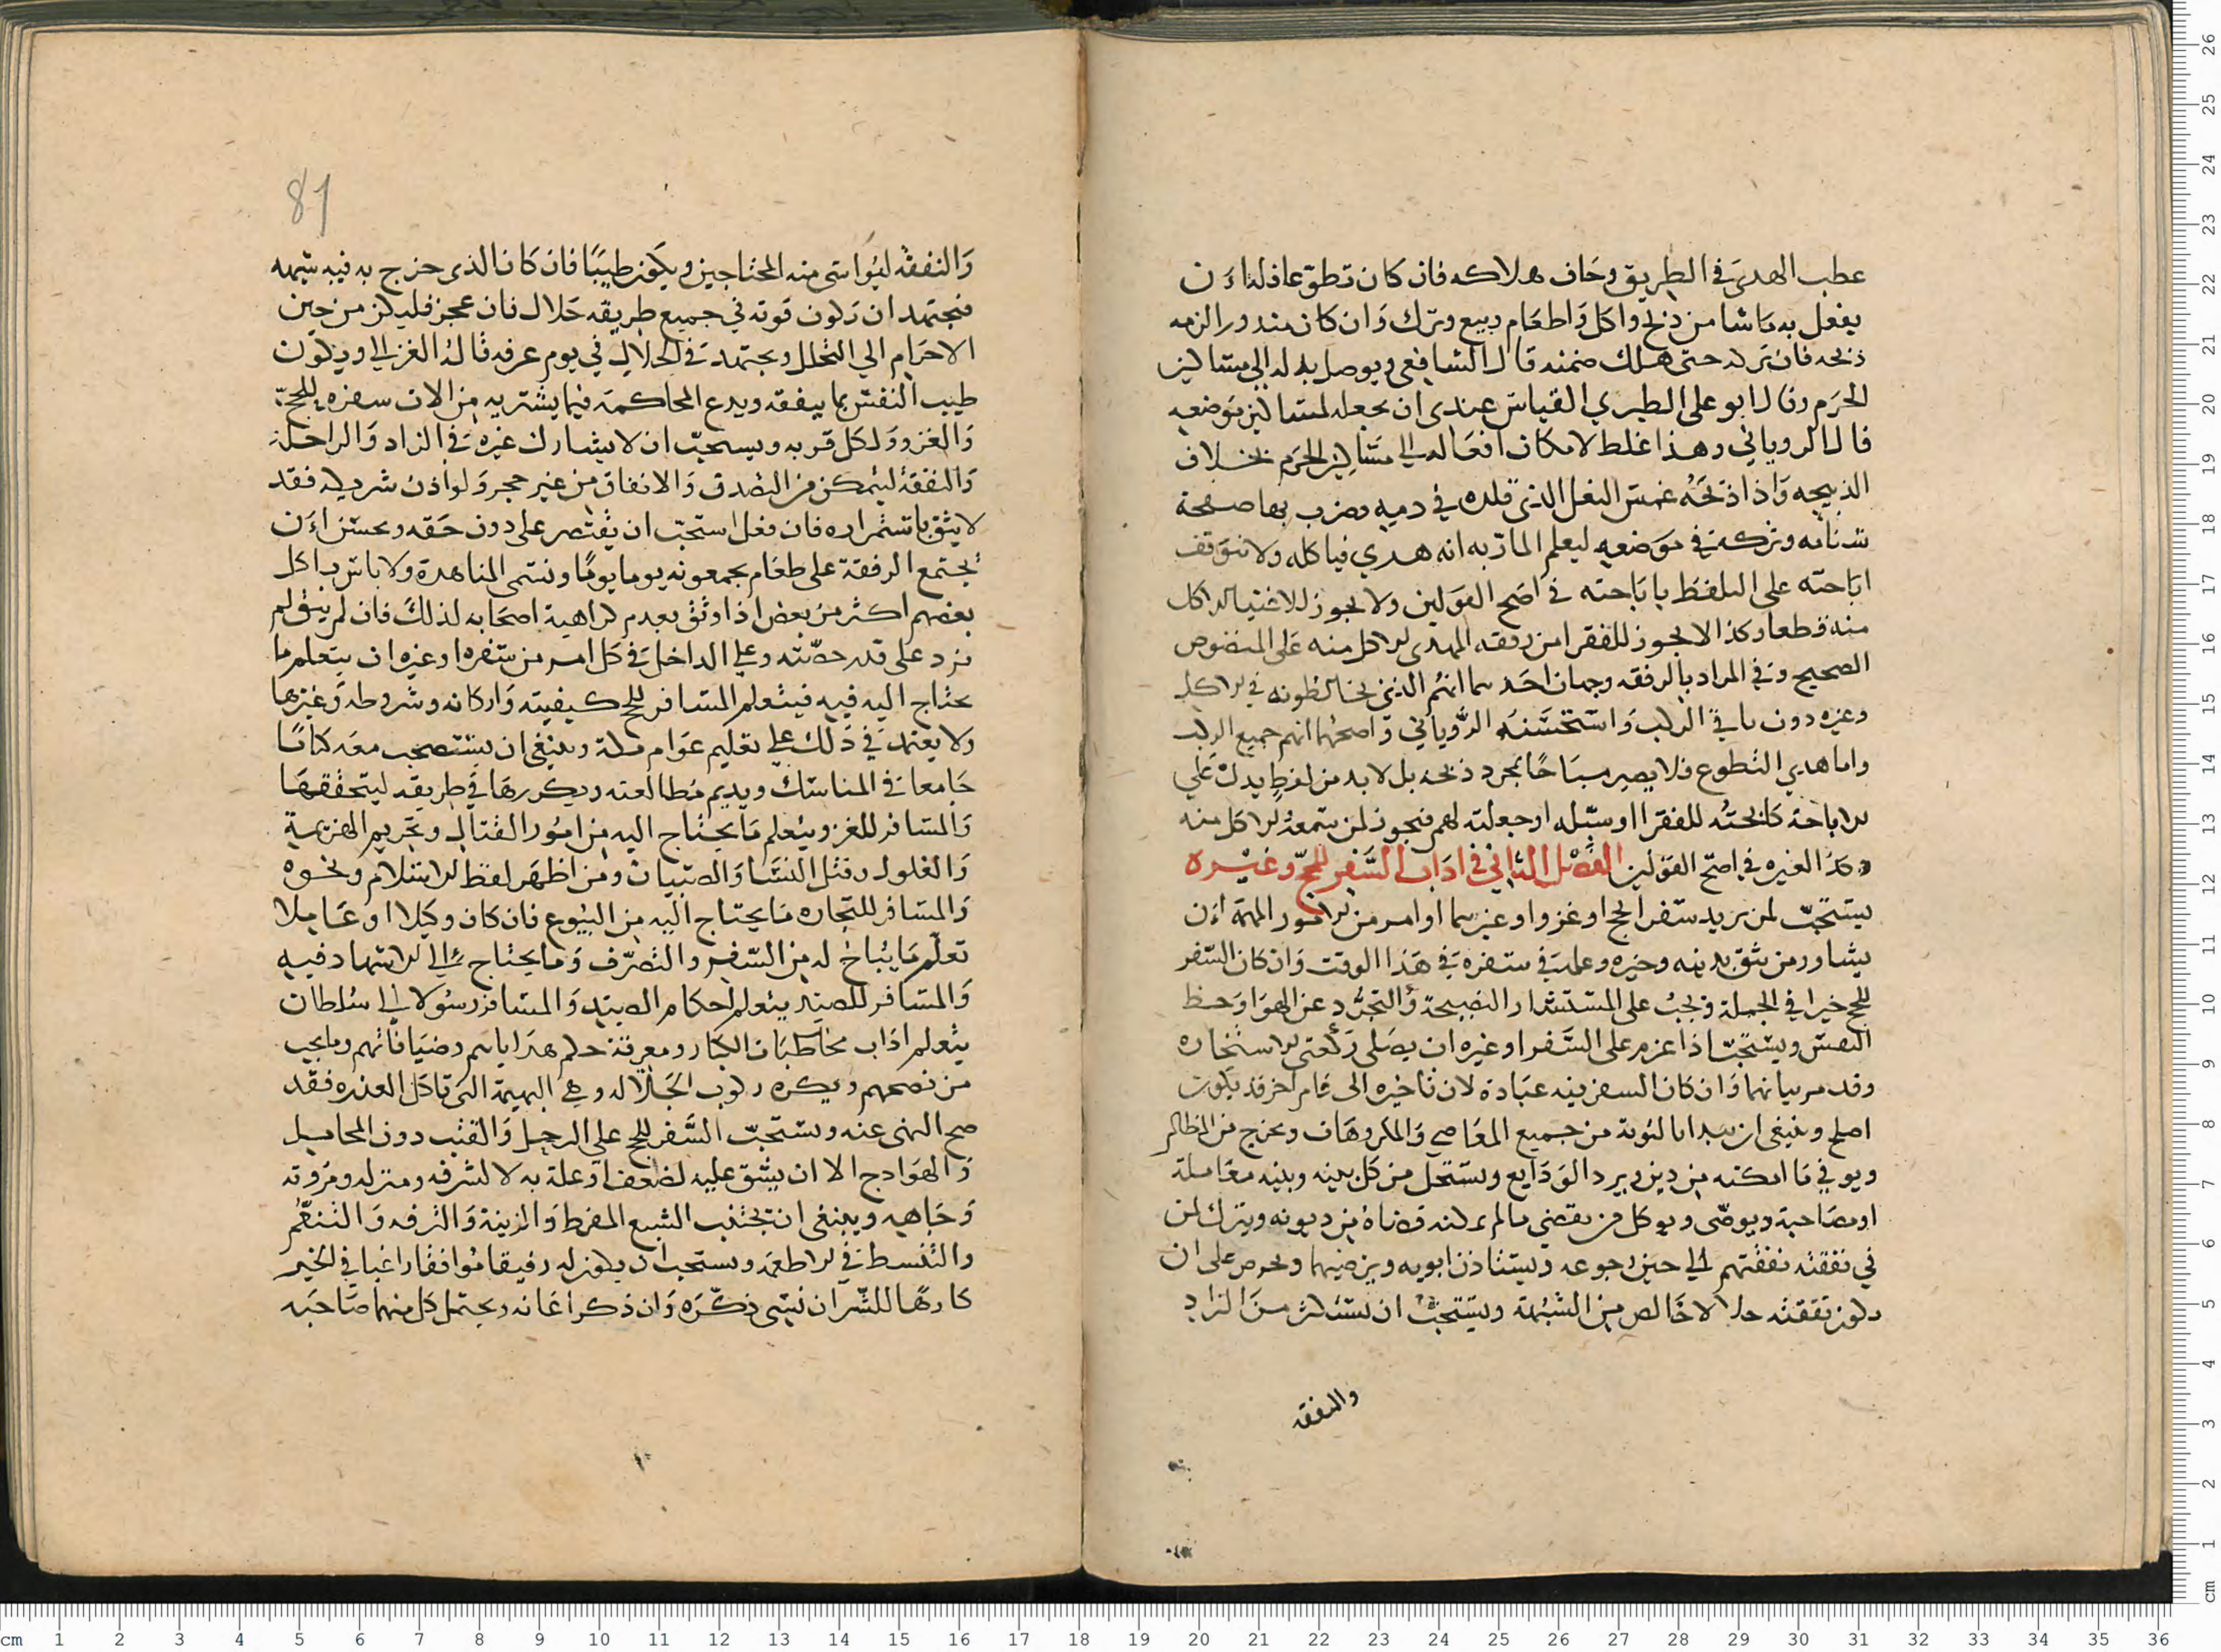 عطب الهدي في الطريق وخاف هلاكه فان كان تطوعا فله ان
يفعل به ماشا من ذبح واكل واطعام وبيع وترك وان كان منذورا لزمه
ذبحه فان تركه حتى هلك ضمنه قال الشافعي ويوصل بدله الى مساكين
الحرم وقال ابو على الطبري القياس عندي ان يجعله لمساكين موضعه
قال الروياني وهذا غلط لامكان ايصاله الي مساكين الحرم بخلاف
الذبيحه واذا ذبحه غمس النعل الذي قلده في دمه وضرب بها صفحة
سنامه وتركه في موضعه ليعلم المار به انه هدي فياكله ولا تتوقف
اباحته على التلفظ باباحته في اصح القولين ولا يجوز للاغنيا الاكل
منه قطعا وكذا لا يجوز للفقرا من رفقه المهدي الاكل منه على المنصوص
الصحيح وفي المراد بالرفقه وجهان احدهما انهم الذين يخالطونه في الاكل
وغيره دون باقي الركب واستحسنه الروياني واصحهما انهم جميع الركب
واما هدي التطوع فلا يصير مباحا بمجرد ذبحه بل لا بد من لفظ يدل علي
الاباحة كابحته للفقرا او سبله او جعلته لهم فيجوز لمن سمعه الاكل منه
وكذا لغيره في اصح القولين الفصل الثاني في اداب السفر للحج وغيره
يستحب لمن يريد سفرا لحج او غزو او غيرهما او امر من الامور المهمة ان
يشاور من يثق بدينه وخيره وعلمه في سفره في هذا الوقت وان كان السفر
للحج خيرا في الجملة ويجب على المستشار النصيحة والتجرد عن الهوا وحظ
النفس ويستحب اذا عزم على السفر او غيره ان يصلي ركعتي الاستخاره
وقد مر بيانهما وان كان السفر فيه عبادة لان تاخيره الى عام اخر قد يكون
اصلح وينبغي ان يبدا بالتوبة من جميع المعاصي والمكروهات ويخرج من المظالم
ويوفي ما امكنه من دين ويرد الودايع ويستحل من كل بينه وبينه معاملة
او مصاحبة ويوصى ويوكل من يقضي ما لم يمكنه قضاؤه من ديونه ويترك لمن
في نفقته نفقتهم الي حين رجوعه ويستاذن ابويه ويرضيهما ويحرص على ان
تكون نفقته حلالا خالص من الشبهة ويستحب ان يستكثر من الزاد
والنفقه
81
والنفقه ليواسى منه المحتاجين ويكون طيبا فان كان الذى خرج به فيه شبهه
فيجتهد ان تكون قوته في جميع طريقه حلال فان عجز فليكن من حين
الاحرام الي التحلل ويجتهد في الحلال في يوم عرفه قاله الغزالي ويكون
طيب النفس بما ينفقه ويدع المحاكمه فيما يشتريه من الات سفره للحج
والغزو ولكل قربه ويستحب ان لا يشارك غيره في الزاد والراحلة
والنفقة ليتمكن من التصدق والانفاق من غير حجر ولو اذن شريكه فقد
لا يثق باستمراره فان فعل استحب ان يقتصر على دون حقه ويحسن ان
يجتمع الرفقة على طعام يجمعونه يوما يوما وتسمى المناهدة ولا باس باكل
بعضهم اكثر من بعض اذا وثق بعدم كراهية اصحابه لذلك فان لم يثق لم
يزد على قدر حصته وعلي الداخل في كل امر من سفره او غيره ان يتعلم ما
يحتاج اليه فيه فيتعلم المسافر للحج كيفيته واركانه وشروطه وغيرها
ولا يعتمد في ذلك علي تعليم عوام مكة وينبغي ان يستصحب معه كتابا
جامعا في المناسك ويديم مطالعته ويكررها في طريقه ليتحققها
والمسافر للغزو يتعلم ما يحتاج اليه من امور القتال وتحريم الهزيمة
والغلول وقتل النسا والصبيان ومن اظهر لفظ الاسلام ونحوه
والمسافر للتجاره ما يحتاج اليه من البيوع فان كان وكيلا او عاملا
تعلم ما يباح له من السفر والتصرف وما يحتاج الي الاشهاد فيه
والمسافر للصيد يتعلم احكام الصيد والمسافر رسولا الي سلطان
يتعلم اداب مخاطبات الكبار ومعرفة حكم هداياهم وضيافاتهم وما يجب
من نصحهم ويكره ركوب الجلاله وهي البهيمة التي تاكل العذره فقد
صح النهى عنه ويستحب السفر للحج علي الرحل والقتب دون المحامل
والهوادج الا ان يشق عليه لضعف او علة به لا لشرفه ومنزله ومروته
وجاهه وينبغي ان تجتنب الشبع المفرط والزينة والترفه والتنعم
والتبسط في الاطعمه ويستحب ان يكون له رفيقا موافقا راغبا في الخير
كارها للشر ان نسى ذكره وان ذكر اعانه ويحتمل كل منهما صاحبه